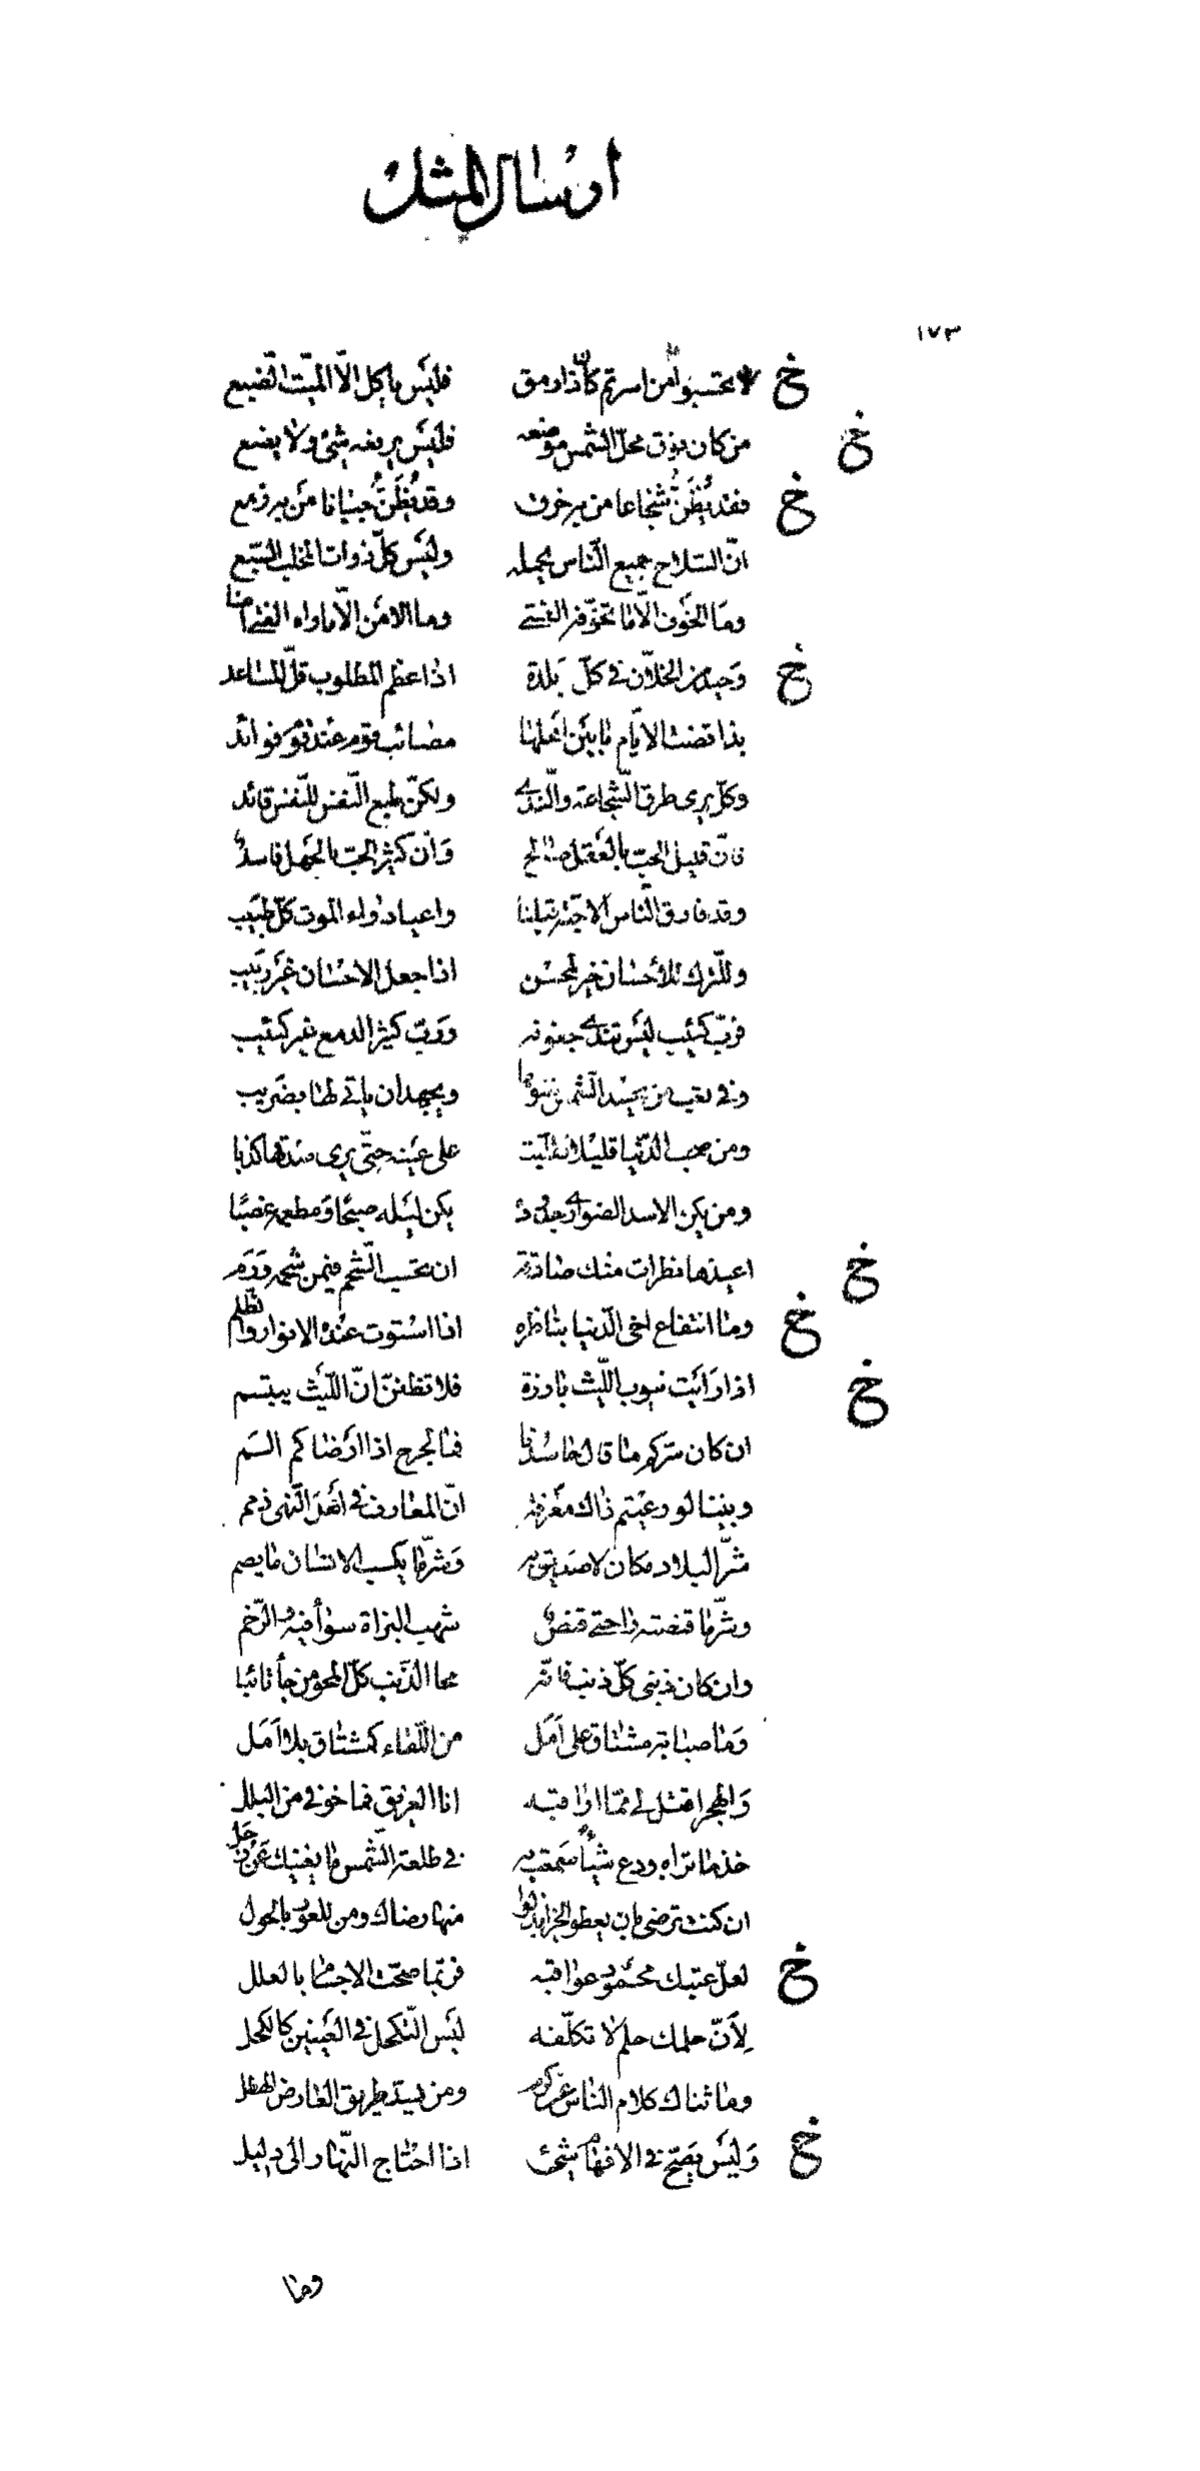 ارسال المثل
١٧٣
خ لا تحسبوا من اسرتم كان ذا رمق فليس ياكل الا الميت الضبع
خ من كان فوق محل الشمس موضعه فليس يرفعه شئ ولا يضع
خ فقد يظن شجاعا من به خرق وقد يظن جبانا من به زمع
انّ السلاح جميع النّاس يحمله وليس كلّ ذوات المخلب السّبع
وما الخوف الّا ما تخوّفه الفتى وما الامن الّا ما راه الفتى امنا
خ وحيد من الخلّان في كلّ بلدة اذا عظم المطلوب قلّ المساعد
بذا قضت الايّام ما بين اهلها مصائب قوم عند قوم فوائد
وكلّ يرى طرق الشّجاعة والنّدى ولكنّ طبع النّفس للنّفس قائد
فانّ قليل الحبّ بالعقل صالح وانّ كثير الحبّ بالجهل فاسد
وقد فارق النّاس الاحبّة قبلنا واعيا دواء الموت كلّ طبيب
وللتّرك للاحسان خير لمحسن اذا جعل الاحسان غير ربيب
فربّ كئيب ليس تندى جفونه وربّ كثير الدمع غير كئيب
وفي تعب من يحسد الشّمس نورها ويجهد ان ياتي لها بضريب
ومن صحب الدّنيا قليلا تقلّبت على عينه حتّى يرى صدقها كذبا
ومن يكن الاسد الضواري جدوده يكن ليله صبحا ومطعمه غصبا
خ اعيذها نظرات منك صادقة ان تحسب الشّحم فيمن شحمه ورم
خ وما انتفاع اخي الدّنيا بناظره اذا استوت عنده الانوار والظّلم
خ اذا رايت نيوب اللّيث بارزة فلا تظننّ انّ اللّيث يبتسم
ان كان سرّكم ما قال حاسدنا فما لجرح اذا ارضاكم الم
وبيننا لو رعيتم ذاك معرفة انّ المعارف في اهل النّهى ذمم
شرّ البلاد مكان لا صديق به وشرّ ما يكسب الانسان ما يصم
وشرّ ما قنصته راحتي قنص شهب البزاة سواء فيه والرّخم
وان كان ذنبي كلّ ذنب فانّه محا الذّنب كلّ المحو من جاء تائبا
وما صبابة مشتاق على امل من اللّقاء كمشتاق بلا امل
والهجر اقتل لي ممّا اراقبه انا الغريق فما خوفي من البلل
خذ ما تراه ودع شيئا سمعت به في طلعة الشّمس ما يغنيك عن زحل
ان كنت ترضى بان يعطوا الجزى بذلوا منها رضاك ومن للعور بالحول
خ لعلّ عتبك محمود عواقبه فربّما صحّت الاجسام بالعلل
لانّ حلمك حلم لا تكلّفه ليس التّكحّل في العينين كالكحل
وما ثناك كلام الناس عن كرم ومن يسدّ طريق العارض الهطل
خ وليس يصحّ في الافهام شئ اذا احتاج النّهار الى دليل
وما